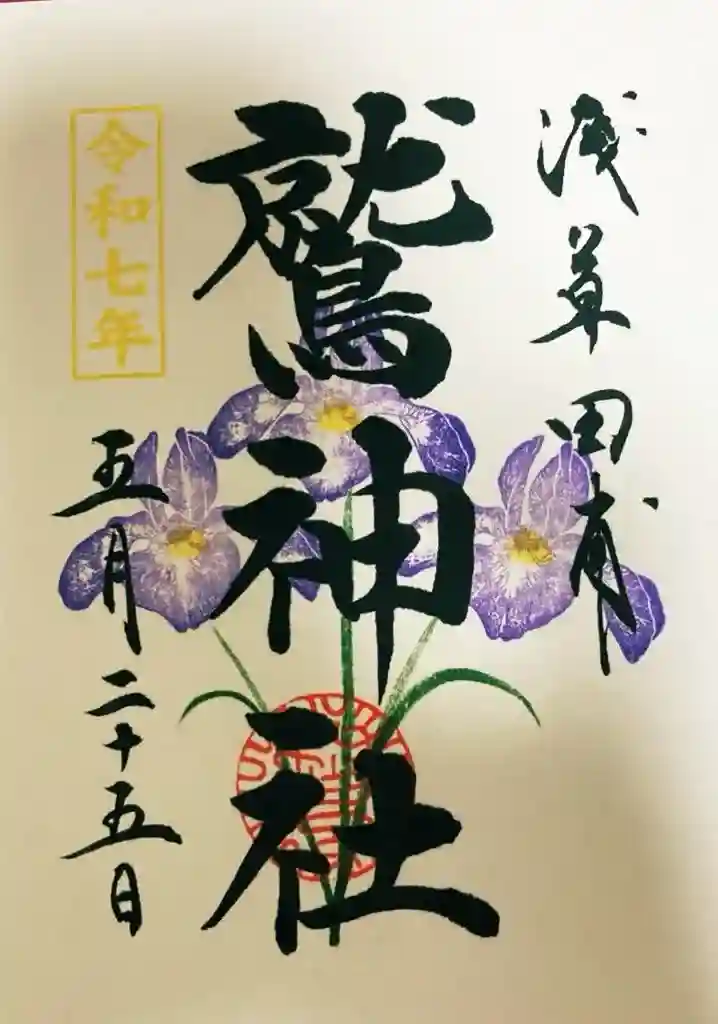 浅草田甫
鷲神社
令和七年
五月二十五日